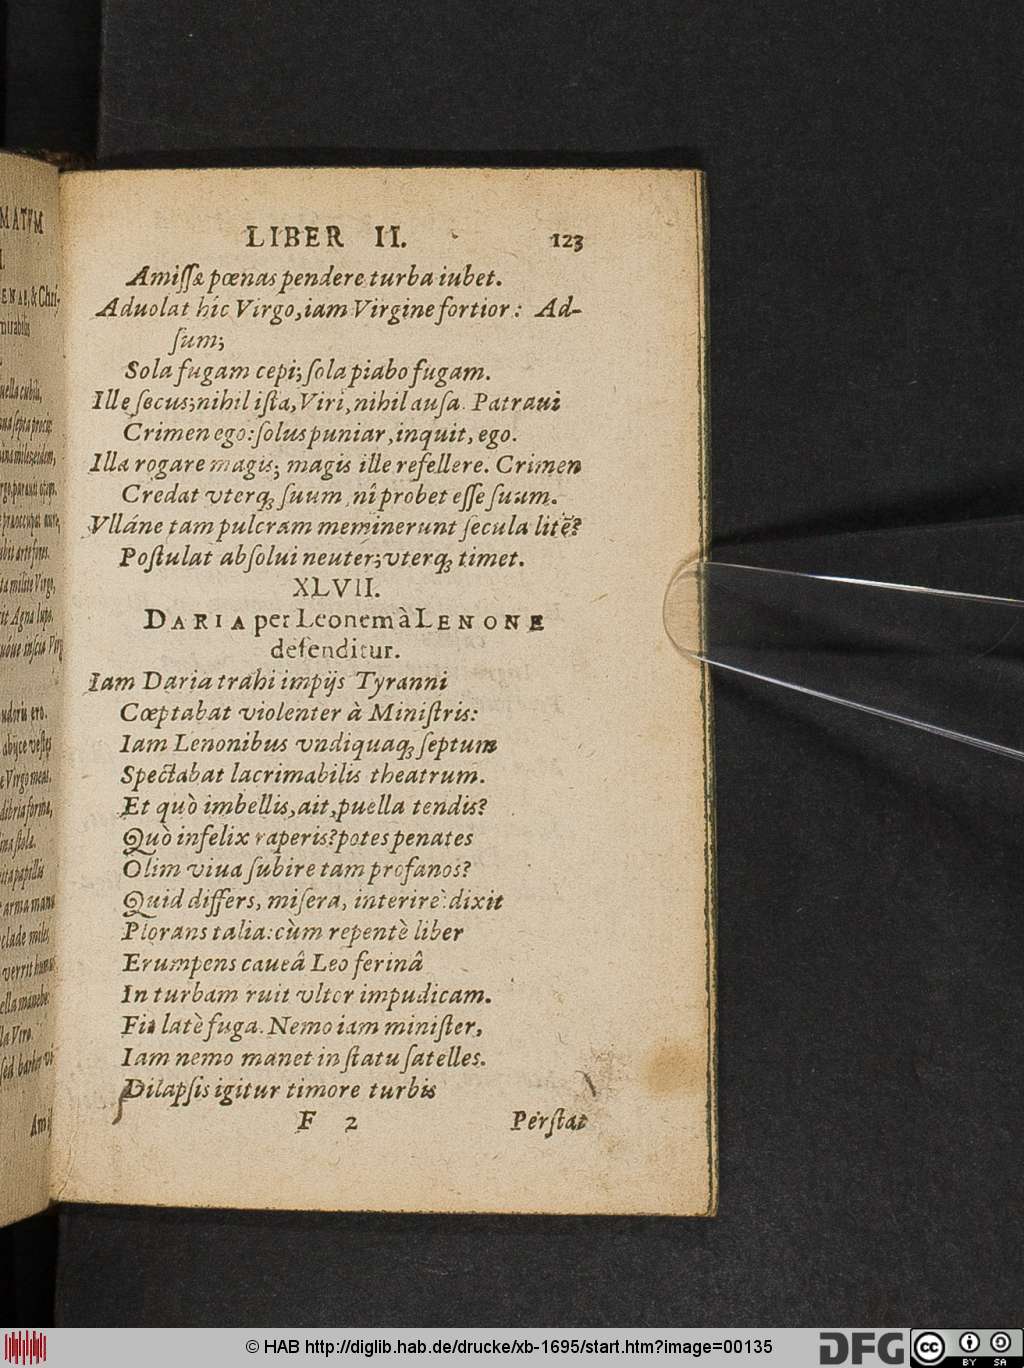 LIBER II. 123
Amissæ pœnas pendere turba iubet.
Aduolat hîc Virgo, iam Virgine fortior: Ad-
sum;
Sola fugam cepi; sola piabo fugam.
Ille secus; nihil ista, Viri, nihil ausa. Patraui
Crimen ego: solus puniar, inquit, ego.
Illa rogare magis; magis ille refellere. Crimen
Credat vterq; suum, nî probet esse suum.
Vlláne tam pulcram meminerunt secula litẽ?
Postulat absolui neuter; vterq; timet.
XLVII.
DARIA per Leonem à LENONE
defenditur.
Iam Daria trahi impijs Tyranni
Cœptabat violenter à Ministris:
Iam Lenonibus vndiquaq; septum
Spectabat lacrimabilis theatrum.
Et quò imbellis, ait, puella tendis?
Quò infelix raperis? potes penates
Olim viua subire tam profanos?
Quid differs, misera, interire? dixit
Plorans talia: cùm repentè liber
Erumpens caueâ Leo ferinâ
In turbam ruit vltor impudicam.
Fit latè fuga. Nemo iam minister,
Iam nemo manet in statu satelles.
Dilapsis igitur timore turbis
F 2 Perstat
MATVM
ENAE, & Chri-
mirabilis
© HAB http://diglib.hab.de/drucke/xb-1695/start.htm?image=00135
DFG
cc BY SA